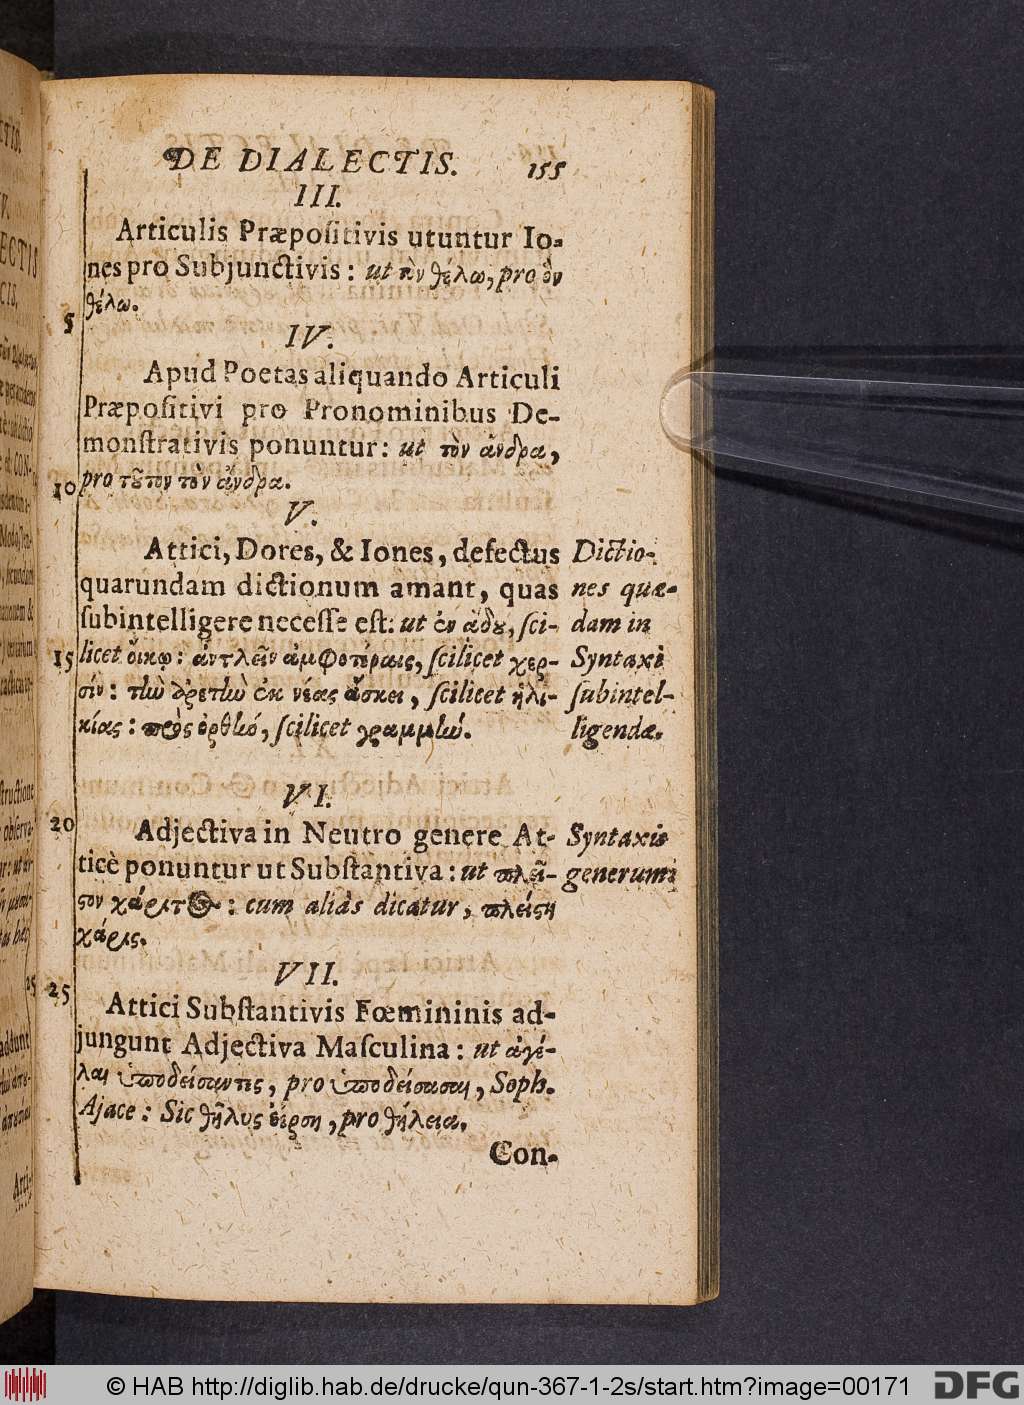 DE DIALECTIS. 155
III.
Articulis Præpoſitivis utuntur Io-
nes pro Subjunctivis: ut τὸν θέλω, pro ὃν
θέλω.
5
IV.
Apud Poetas aliquando Articuli
Præpoſitivi pro Pronominibus De-
monſtrativis ponuntur: ut τὸν ἄνδρα,
10 pro τοῦτον τὸν ἄνδρα.
V.
Attici, Dores, & Iones, defectus
quarundam dictionum amant, quas
ſubintelligere neceſſe eſt: ut ἐν ᾅδου, ſci-
15 licet οἴκῳ: ἀντλεῖν ἀμφοτέραις, ſcilicet χερ-
σίν: τὴν ἀρετὴν ἐκ νέας ἄσκει, ſcilicet ἡλι-
κίας: πρὸς ὀρθήν, ſcilicet γραμμήν.
Dictio-
nes quæ-
dam in
Syntaxi
ſubintel-
ligendæ.
VI.
20
Adjectiva in Neutro genere At-
ticè ponuntur ut Subſtantiva: ut πλεῖ-
ϛον χάριτος: cum aliàs dicatur, πλείϛη
χάρις.
Syntaxis
generum
VII.
25
Attici Subſtantivis Fœmininis ad-
jungunt Adjectiva Maſculina: ut ἀγέ-
λαι ὑποδείσαντες, pro ὑποδείσασαι, Soph.
Ajace: Sic θῆλυς ἐέρση, pro θήλεια.
Con-
© HAB http://diglib.hab.de/drucke/qun-367-1-2s/start.htm?image=00171
DFG